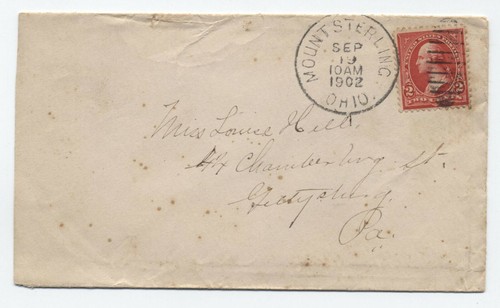 MOUNT STERLING
SEP
19
10AM
1902
OHIO.
Miss Louise Hill.
44 Chambersburg St.
Gettysburg.
Pa.